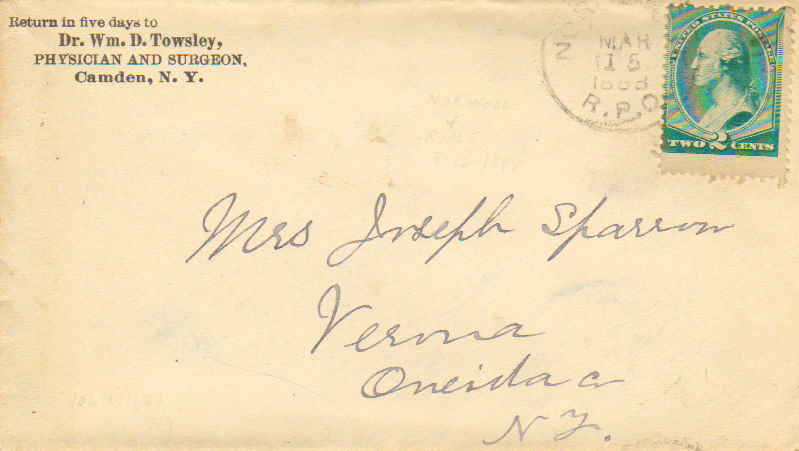 Return in five days to
Dr. Wm. D. Towsley,
PHYSICIAN AND SURGEON,
Camden, N. Y.
MAR
15
1888
R.P.O.
UNITED STATES POSTAGE
TWO 2 CENTS
Mrs Joseph Sparrow
Verona
Oneida Co
N Y.